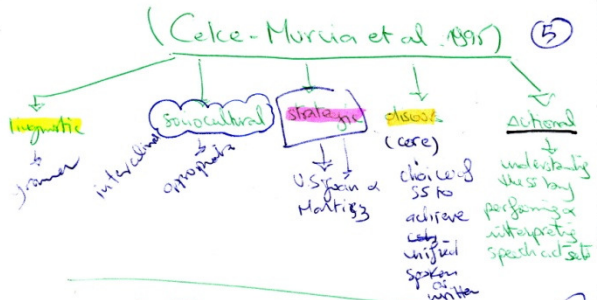 (Celce-Murcia et al. 1995) 5
linguistic
grammar
sociocultural
intercultural
appropriate
strategic
discourse
(core)
choice of
SS to
achieve
unified
spoken
or
written
Actional
understanding
performing &
interpreting
speech act sets